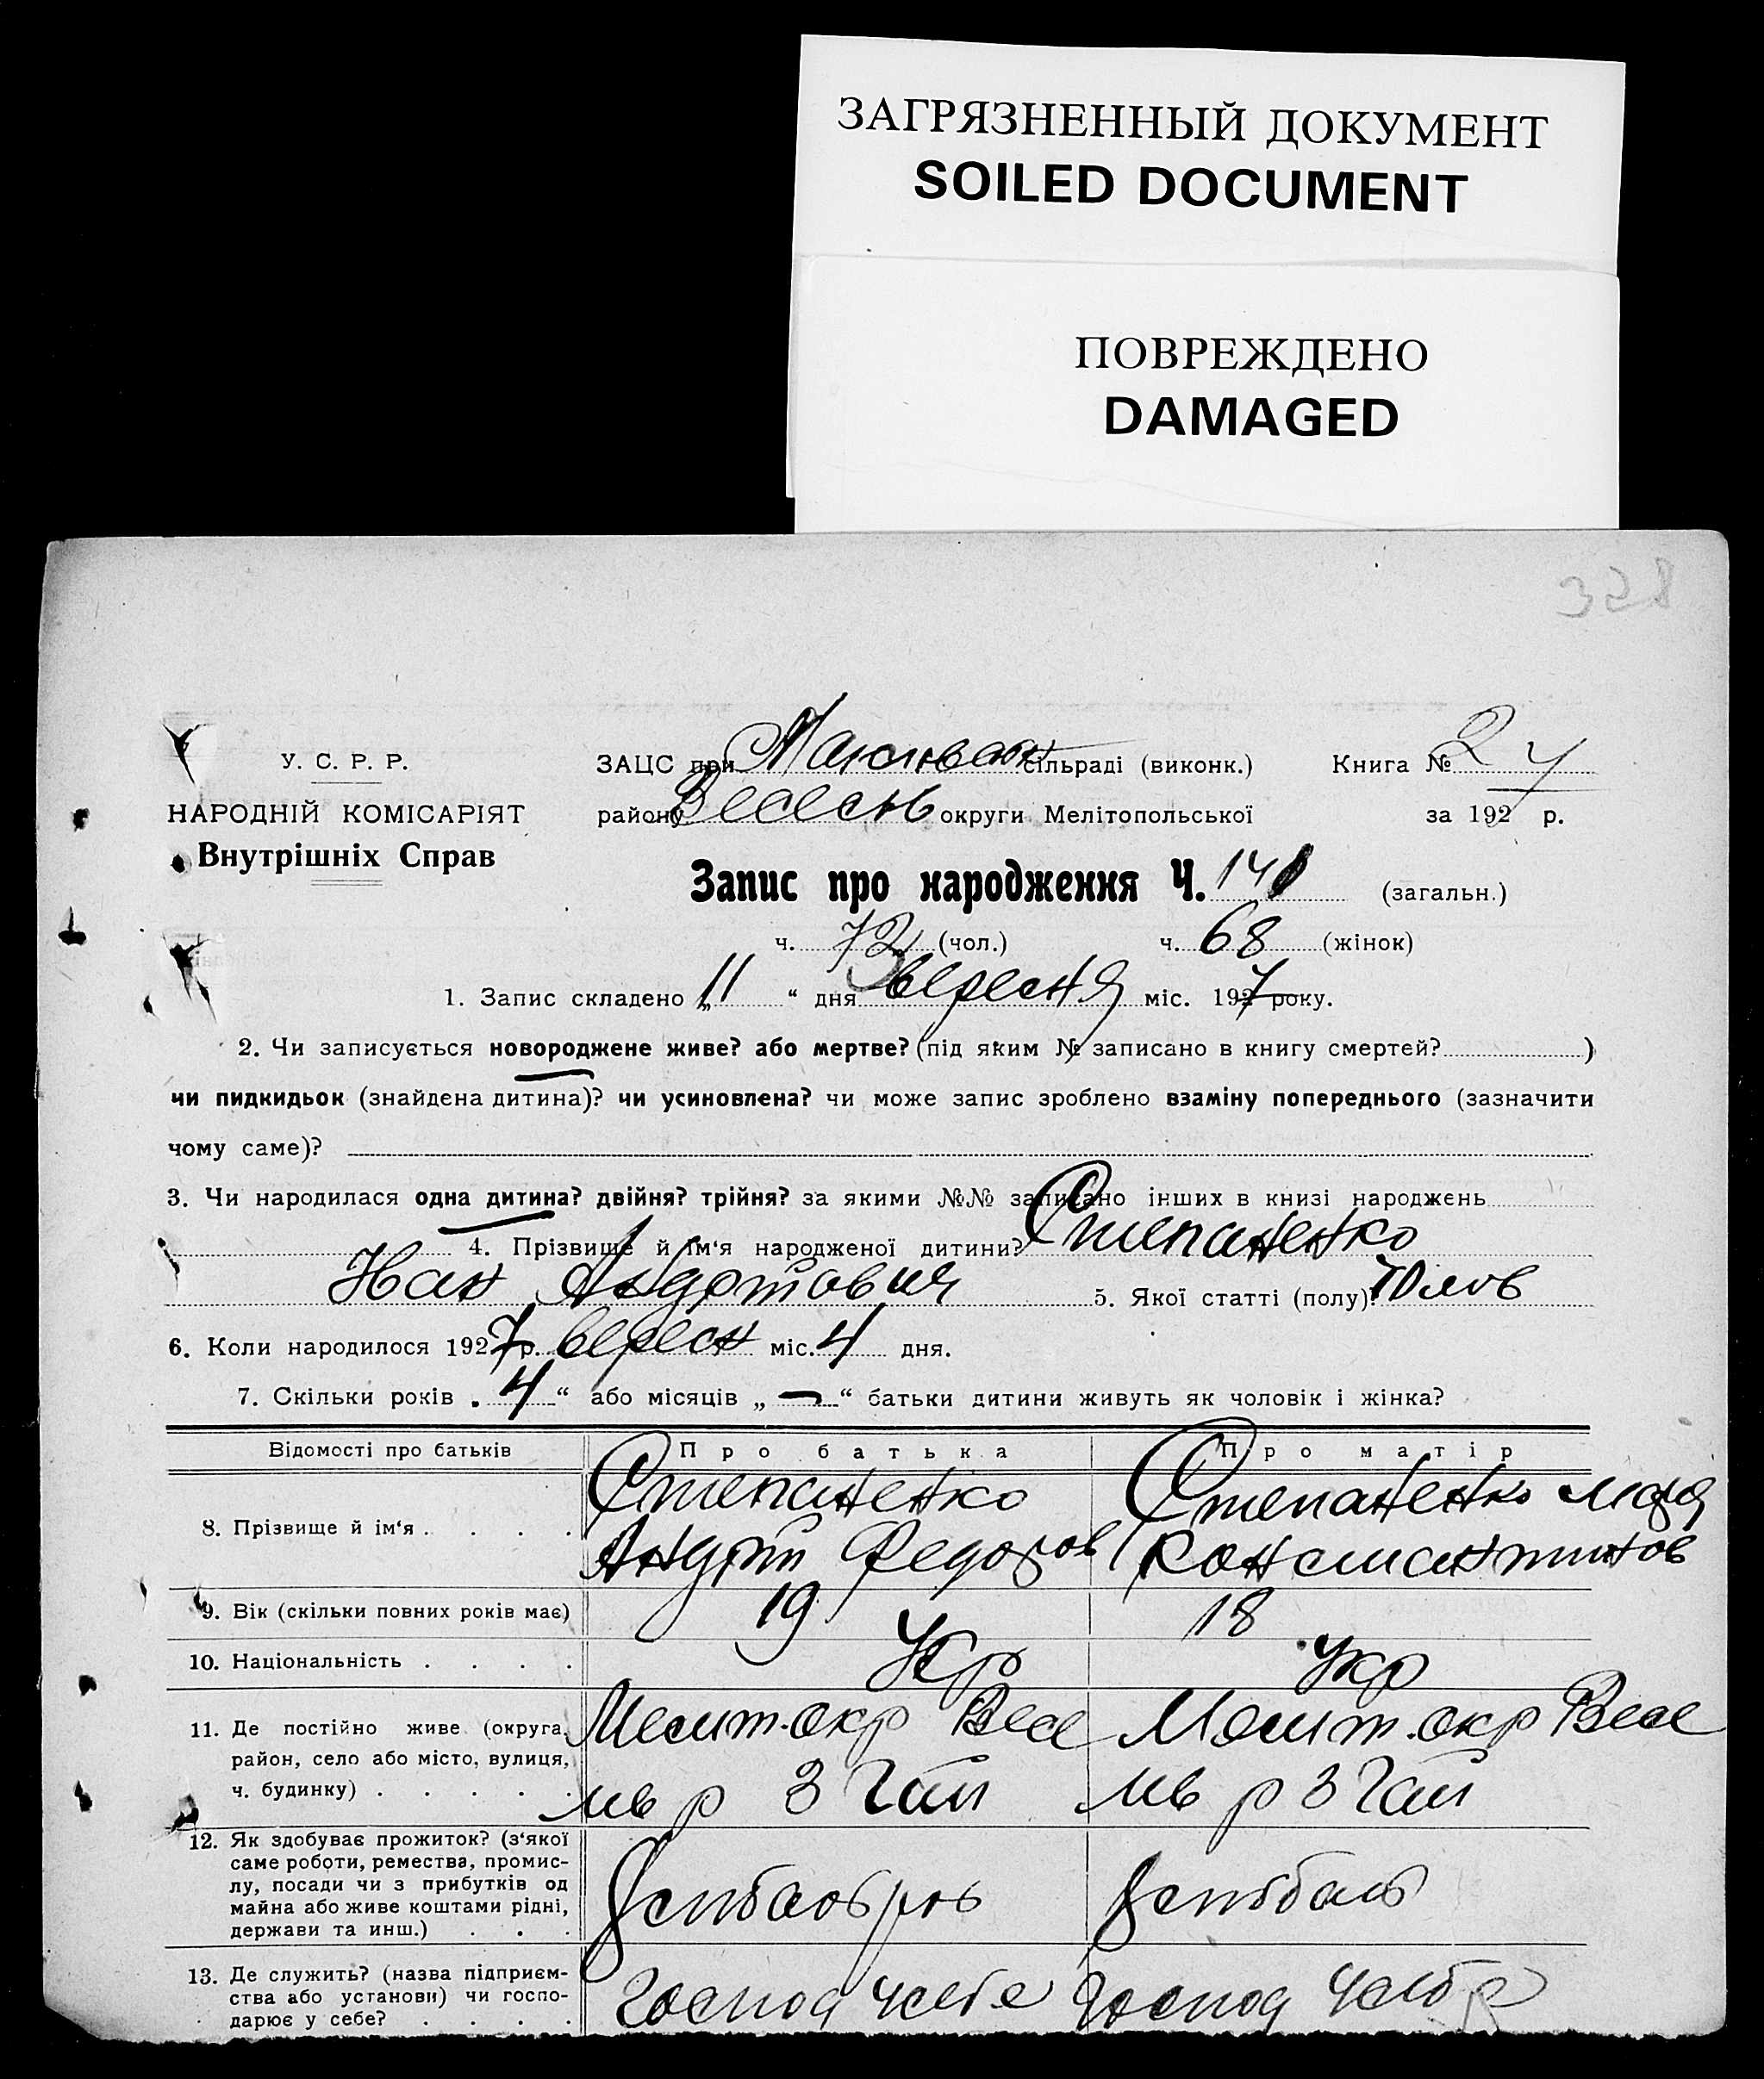 ЗАГРЯЗНЕННЫЙ ДОКУМЕНТ
SOILED DOCUMENT
ПОВРЕЖДЕНО
DAMAGED
328
У. С. Р. Р.
НАРОДНІЙ КОМІСАРІЯТ
Внутрішніх Справ
ЗАЦС при сільраді (виконк.) Книга № 24
району округи Мелітопольської за 1927 р.
Запис про народження Ч. 140 (загальн.)
ч. 72 (чол.) ч. 68 (жінок)
1. Запис складено „ 11 “ дня вересня міс. 1927 року.
2. Чи записується новороджене живе? або мертве? (під яким № записано в книгу смертей? )
чи пидкидьок (знайдена дитина)? чи усиновлена? чи може запис зроблено взаміну попереднього (зазначити
чому саме)?
3. Чи народилася одна дитина? двійня? трійня? за якими №№ записано інших в книзі народжень
4. Прізвище й ім‘я народженої дитини? Степаненко
5. Якої статті (полу)?
6. Коли народилося 1927 р. вересн міс. 4 дня.
7. Скільки років „ 4 “ або місяців „ — “ батьки дитини живуть як чоловік і жінка?
Відомості про батьків Про батька Про матір
8. Прізвище й ім‘я . . . . Степаненко Степаненко
Андрій Федоров Константинов
9. Вік (скільки повних років має) 19 18
10. Національність . . . . Укр Укр
11. Де постійно живе (округа, Мелит. окр Весе Мелит. окр Весе
район, село або місто, вулиця,
ч. будинку) . . . . . лів р З Гай лів р З Гай
12. Як здобуває прожиток? (з‘якої
саме роботи, ремества, промис-
лу, посади чи з прибутків од
майна або живе коштами рідні,
держави та инш.) . . .
13. Де служить? (назва підприєм-
ства або установи) чи госпо-
дарює у себе? . . . . Господ Господ